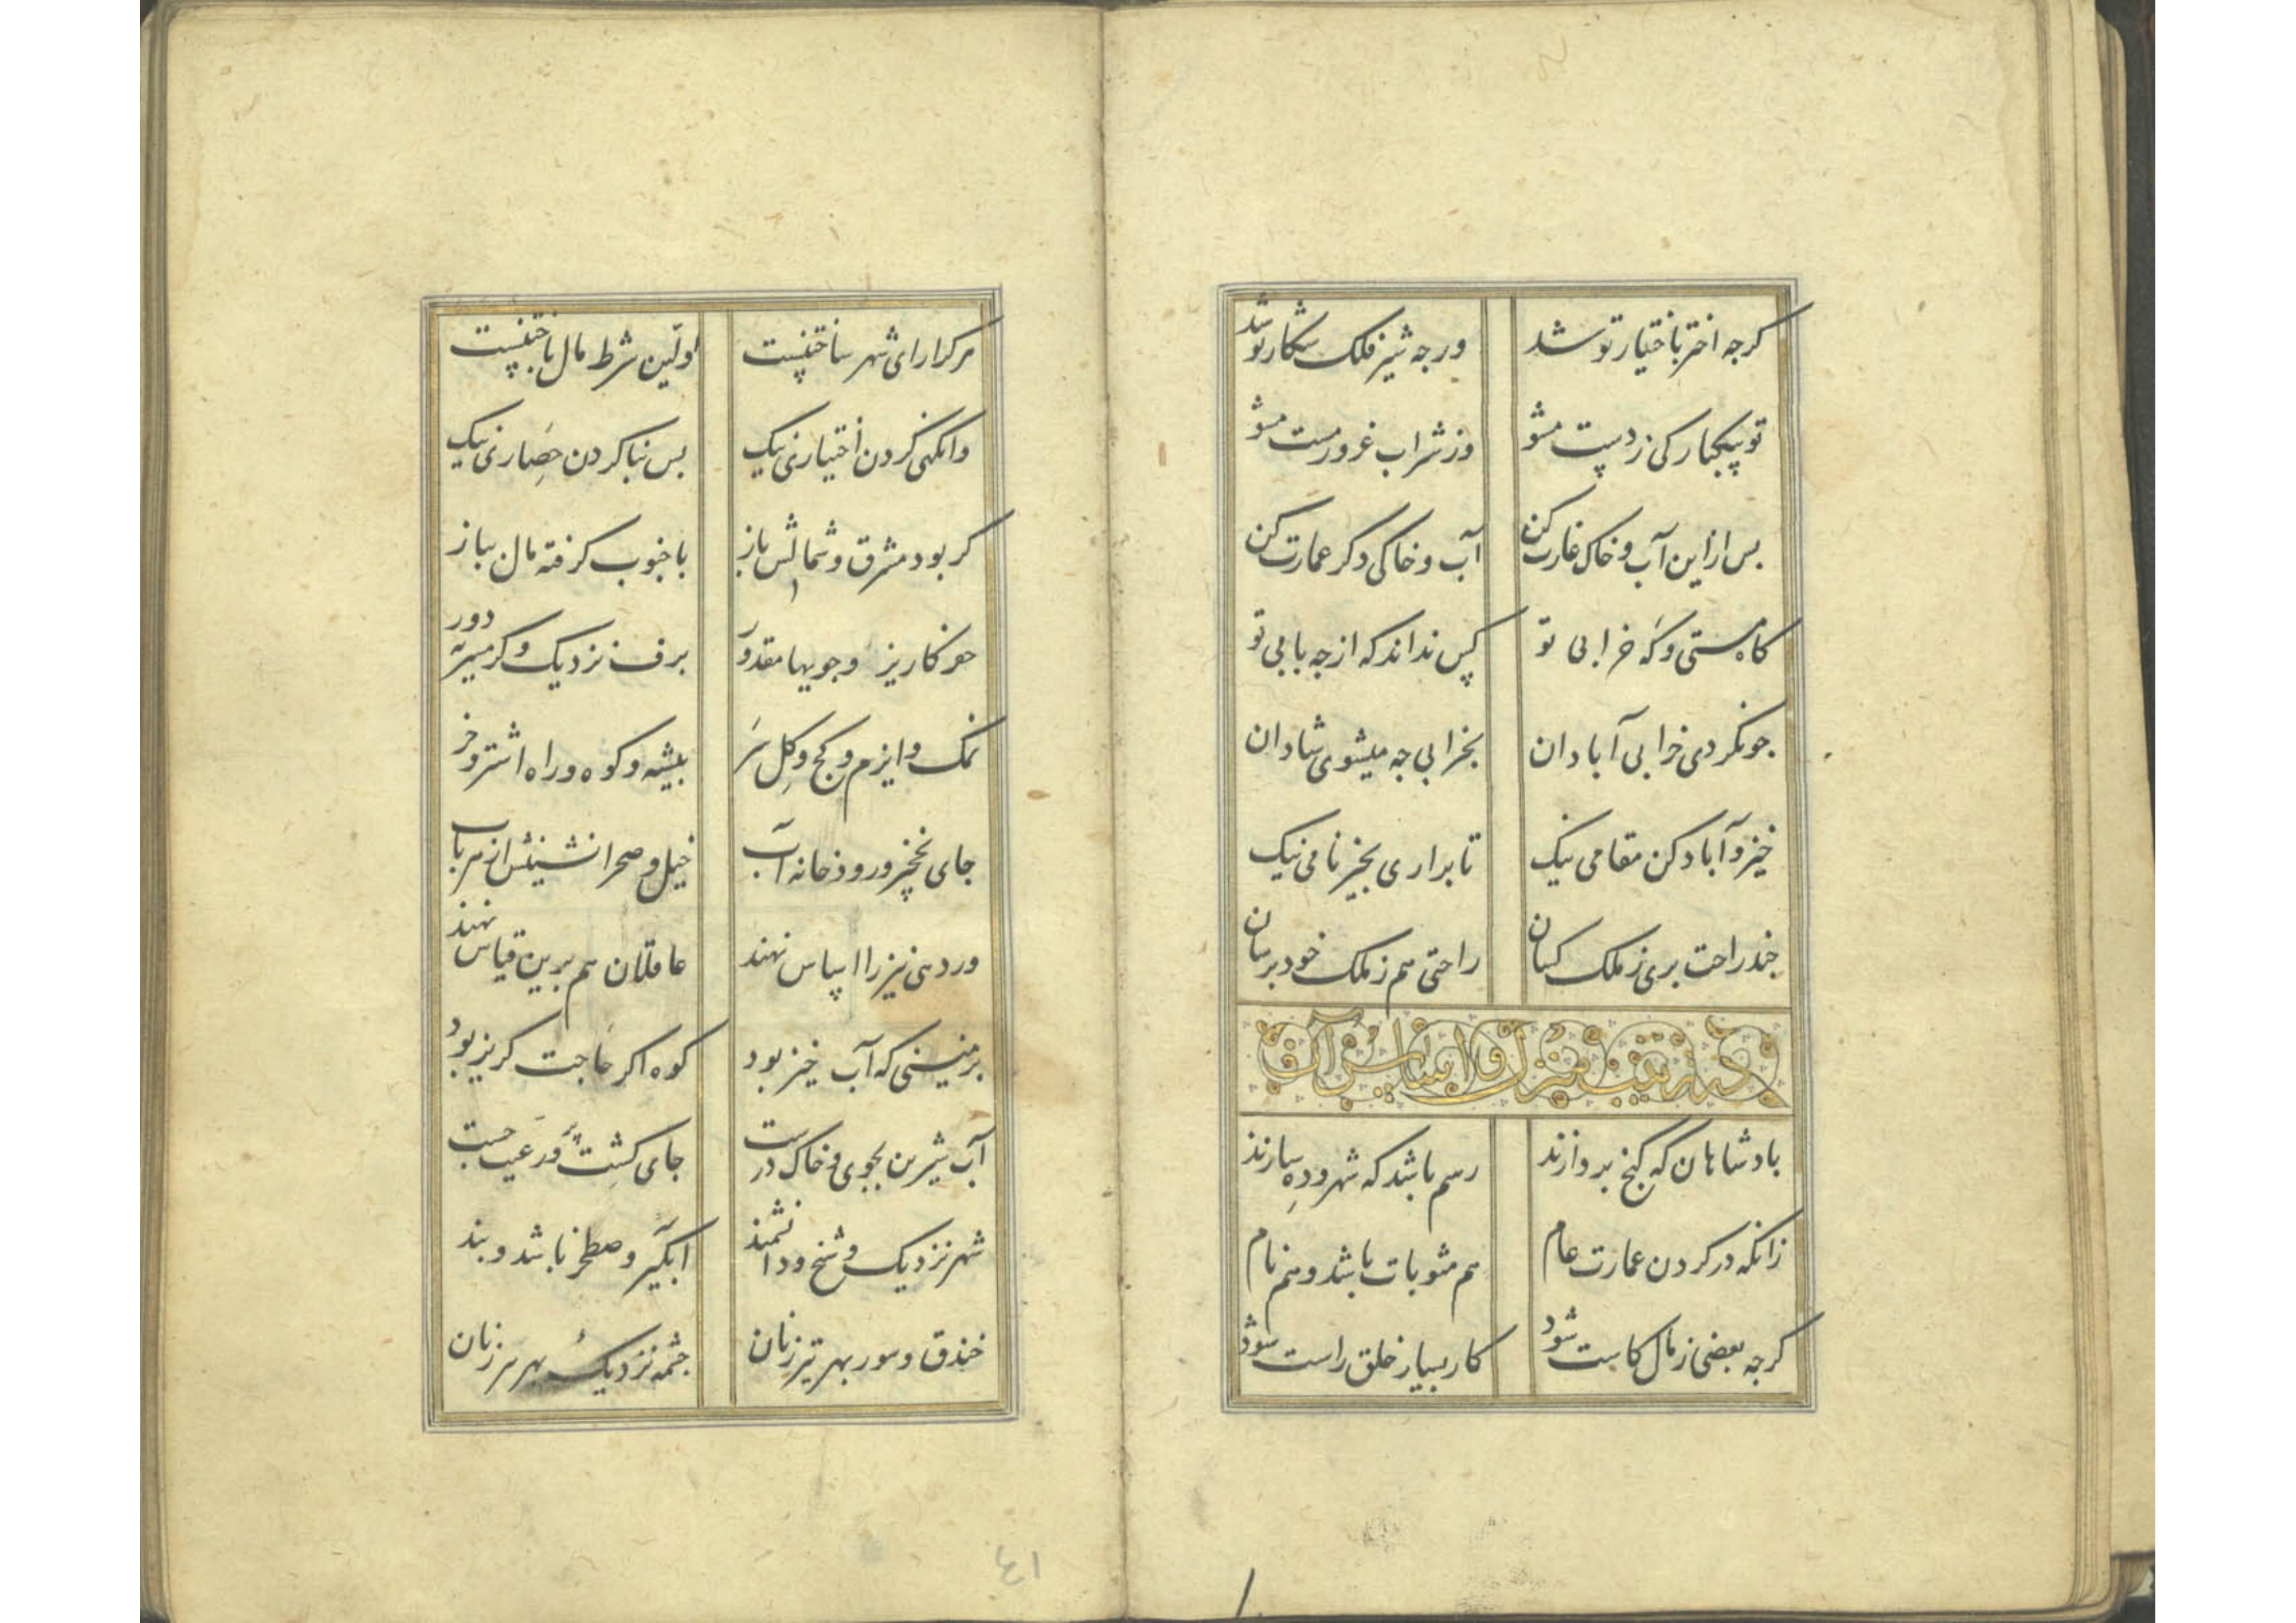 کرجه اختر باختیار تو شد
ورجه شیر فلک شکار تو شد
تو بیکبارکی ز دست مشو
وز شراب غرور مست مشو
بس ازاین آب و خاک غارت کن
آب و خاکی دکر عمارت کن
کاه مستی و که خرابی تو
کس نداند که ازجه بابی تو
جونکردی خرابی آبادان
بخرابی جه میشوی شادان
خیز و آباد کن مقامی نیک
تا براری بخیر نامی نیک
جند راحت بری ز ملک کسان
راحتی هم ز ملک خود برسان
در ترتیب منزل و اساس آن
بادشاهان که کنج بردازند
رسم باشد که شهر و ده سازند
زانکه در کردن عمارت عام
هم مثوبات باشد و هم نام
کرجه بعضی ز مال کاست شود
کار بسیار خلق راست شود
هرکرا رای شهر ساختنیست
اولین شرط مال باختنیست
وانکهی کردن اختیاری نیک
بس بنا کردن حصاری نیک
کر بود مشرق و شمالش باز
با جنوب کرفته مال بباز
جو کاریز و جویها مقدور
برف نزدیک و کرمسیر نه دور
نمک و ایزم و کج و کل سر
بیشه و کوه و راه اشتر و خر
جای نخچیر و رودخانه آب
خیل و صحرانشینش از هر باب
ور دهی نیز را اساس نهند
عاقلان هم برین قیاس نهند
بر زمینی که آب خیز بود
کوه اکر حاجت کریز بود
آب شیرین بجوی و خاک درست
جای کشت و رعیت جست
شهر نزدیک و شخ و دانشمند
آبکیر و صطخر باشد و بند
خندق و سور بهر تیرزنان
جشمه نزدیک بهر سرزنان
٤١